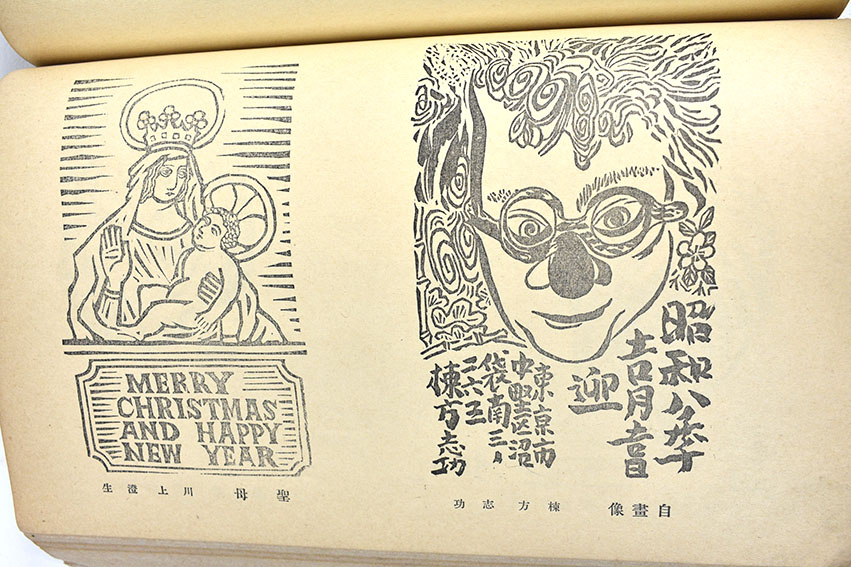 MERRY
CHRISTMAS
AND HAPPY
NEW YEAR
聖母 川上澄生
昭和八年
吉月吉日
迎
東京市
中野区沼
袋南三ノ
棟方志功
自畫像 棟方志功